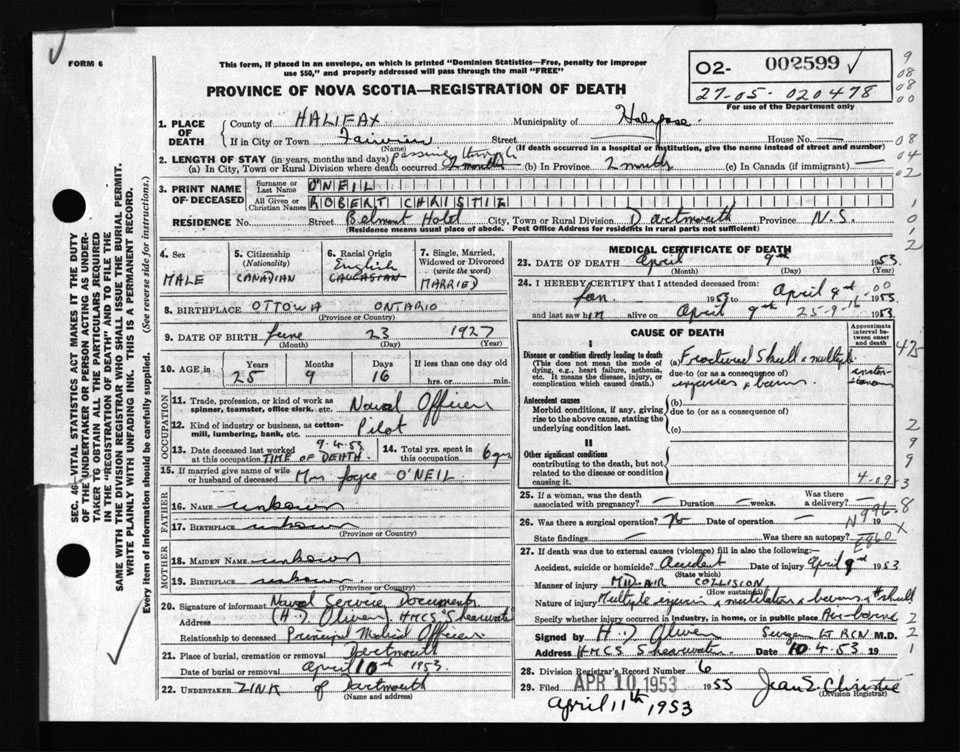 FORM 6
This form, if placed in an envelope, on which is printed "Dominion Statistics—Free, penalty for improper
use $50," and properly addressed will pass through the mail "FREE"
PROVINCE OF NOVA SCOTIA—REGISTRATION OF DEATH
02- 002599 ✓
27-05-020478
For use of the Department only
1. PLACE OF DEATH
County of HALIFAX Municipality of Halifax
If in City or Town Fairview Street — House No. —
(Name) (If death occurred in a hospital or institution, give the name instead of street and number)
2. LENGTH OF STAY (in years, months and days) passing through
(a) In City, Town or Rural Division where death occurred 2 months (b) In Province 2 months (c) In Canada (if immigrant) —
3. PRINT NAME OF DECEASED
Surname or Last Name O'NEIL
All Given or Christian Names ROBERT CHRISTIE
RESIDENCE No. Street Belmont Hotel City, Town or Rural Division Dartmouth Province N.S.
(Residence means usual place of abode. Post Office Address for residents in rural parts not sufficient)
4. Sex
MALE
5. Citizenship
(Nationality)
CANADIAN
6. Racial Origin
English
CAUCASIAN
7. Single, Married, Widowed or Divorced
(write the word)
MARRIED
8. BIRTHPLACE OTTOWA ONTARIO
(Province or Country)
9. DATE OF BIRTH June 23 1927
(Month) (Day) (Year)
10. AGE in Years Months Days If less than one day old
25 9 16 hrs. or min.
OCCUPATION
11. Trade, profession, or kind of work as
spinner, teamster, office clerk, etc. Naval Officer
12. Kind of industry or business, as cotton-
mill, lumbering, bank, etc. Pilot
13. Date deceased last worked at this occupation 9.4.53 TIME OF DEATH.
14. Total yrs. spent in this occupation 6 yrs
15. If married give name of wife
or husband of deceased Mrs Joyce O'NEIL
FATHER
16. NAME unknown
17. BIRTHPLACE unknown
(Province or Country)
MOTHER
18. MAIDEN NAME unknown
19. BIRTHPLACE unknown
(Province or Country)
20. Signature of informant Naval Service Documents
Address (H. Oliver) HMCS "Shearwater"
Relationship to deceased Principal Medical Officer
21. Place of burial, cremation or removal Dartmouth
Date of burial or removal April 10th 1953.
22. UNDERTAKER ZINK of Dartmouth
(Name and address)
MEDICAL CERTIFICATE OF DEATH
23. DATE OF DEATH April 9th 1953.
(Month) (Day) (Year)
24. I HEREBY CERTIFY that I attended deceased from:
Jan 1953 to April 9th 1953.
and last saw him alive on April 9th 1953
CAUSE OF DEATH
Approximate interval between onset and death
I
Disease or condition directly leading to death
(This does not mean the mode of dying, e.g., heart failure, asthenia, etc. It means the disease, injury, or complication which caused death.)
(a) Fractured Skull & multiple
due to (or as a consequence of)
injuries & burns.
Antecedent causes
Morbid conditions, if any, giving rise to the above cause, stating the underlying condition last.
(b)
due to (or as a consequence of)
(c)
II
Other significant conditions
contributing to the death, but not related to the disease or condition causing it.
25. If a woman, was the death associated with pregnancy? — Duration —weeks. Was there a delivery? —
26. Was there a surgical operation? No Date of operation — 19
State findings — Was there an autopsy?
27. If death was due to external causes (violence) fill in also the following:
Accident, suicide or homicide? Accident Date of injury April 9th 1953
(State which)
Manner of injury MID-AIR COLLISION
(How sustained)
Nature of injury Multiple injuries & mutilation & burns, # skull
Specify whether injury occurred in industry, in home, or in public place Air-borne
Signed by H. Oliver Surgeon Lt RCN M.D.
Address HMCS Shearwater Date 10.4.53 19
28. Division Registrar's Record Number 6
29. Filed APR 10 1953 1953 Jean E. Christie
(Division Registrar)
April 11th 1953
SEC. 46—VITAL STATISTICS ACT MAKES IT THE DUTY
OF THE UNDERTAKER OR PERSON ACTING AS UNDER-
TAKER TO OBTAIN ALL THE PARTICULARS REQUIRED
IN THE "REGISTRATION OF DEATH" AND TO FILE THE
SAME WITH THE DIVISION REGISTRAR WHO SHALL ISSUE THE BURIAL PERMIT.
WRITE PLAINLY WITH UNFADING INK. THIS IS A PERMANENT RECORD.
Every item of information should be carefully supplied. (See reverse side for instructions.)